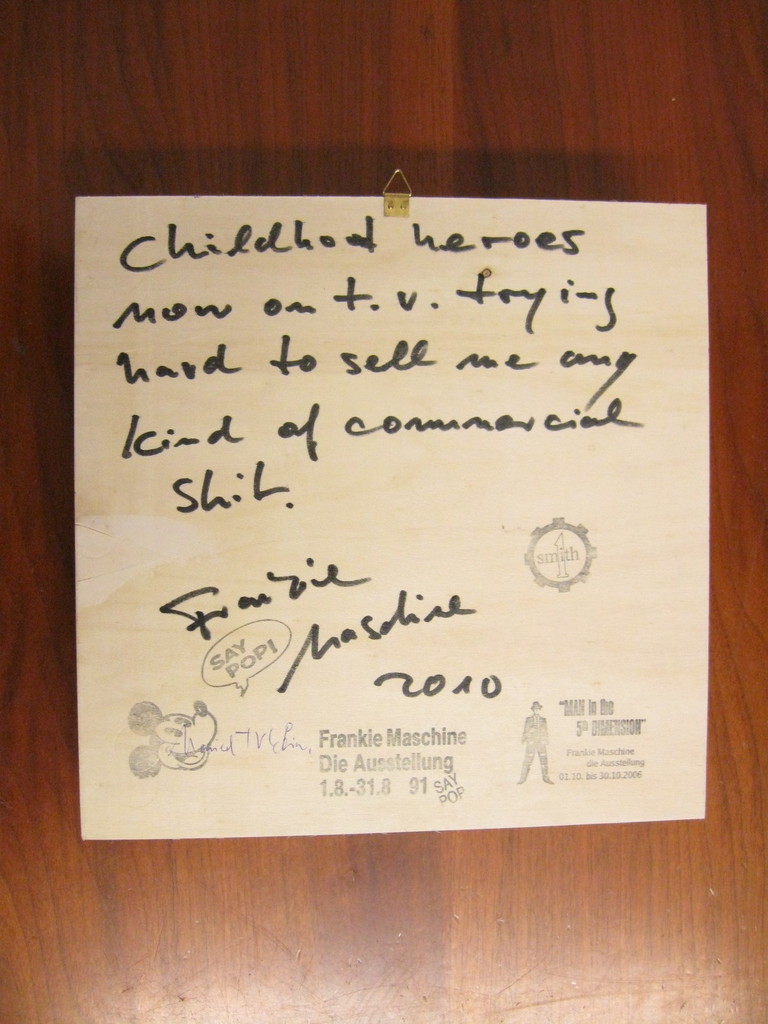 Childhood heroes
now on t.v. trying
hard to sell me any
kind of commercial
shit.
smith
1
Frankie
Maschine
SAY
POP!
2010
Frankie Maschine
Die Ausstellung
1.8.-31.8 91
SAY
POP
"MAN in the
5th DIMENSION"
Frankie Maschine
die Ausstellung
01.10. bis 30.10.2006